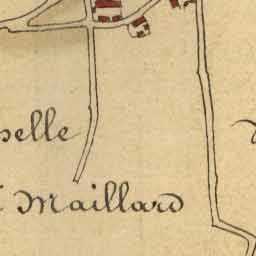 pelle
Maillard